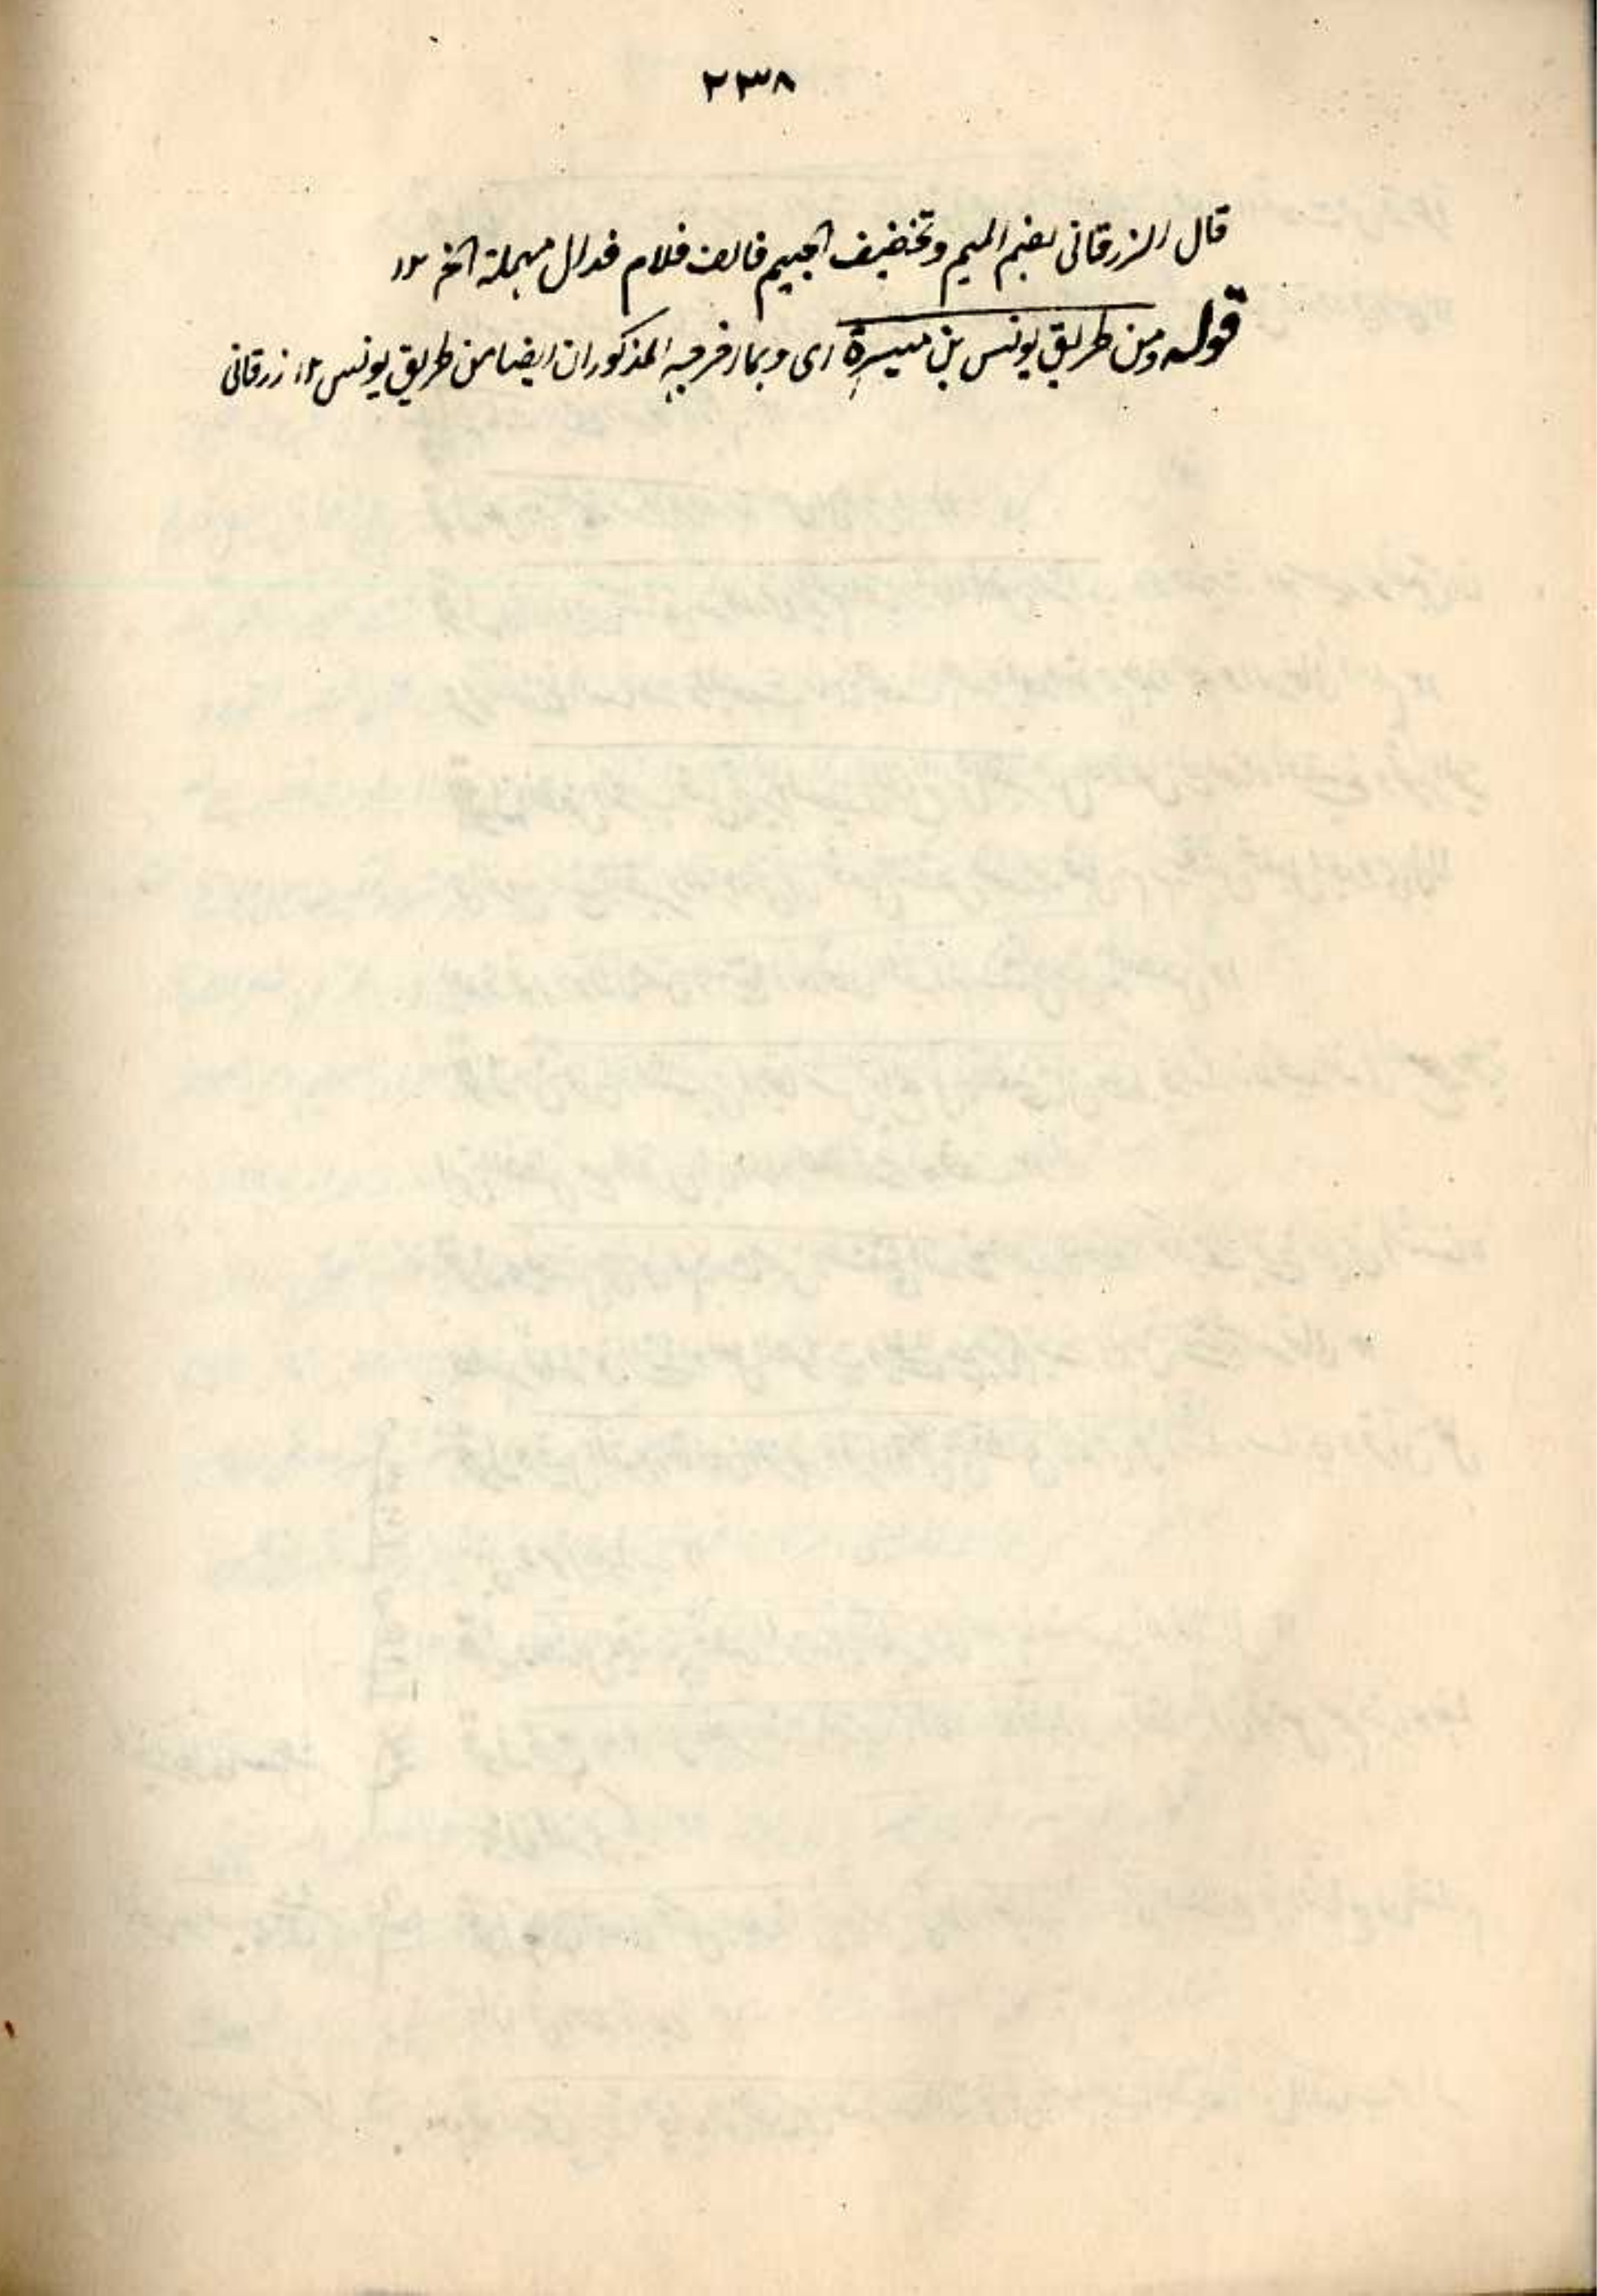 ٢٣٨
قال الزرقانى بضم الميم وتخفيف الجيم فالف فلام فدال مهملة الخ ١٢
قوله ومن طريق يونس بن ميسرة اى ومما اخرجه المذكوران ايضا من طريق يونس ١٢ زرقانى